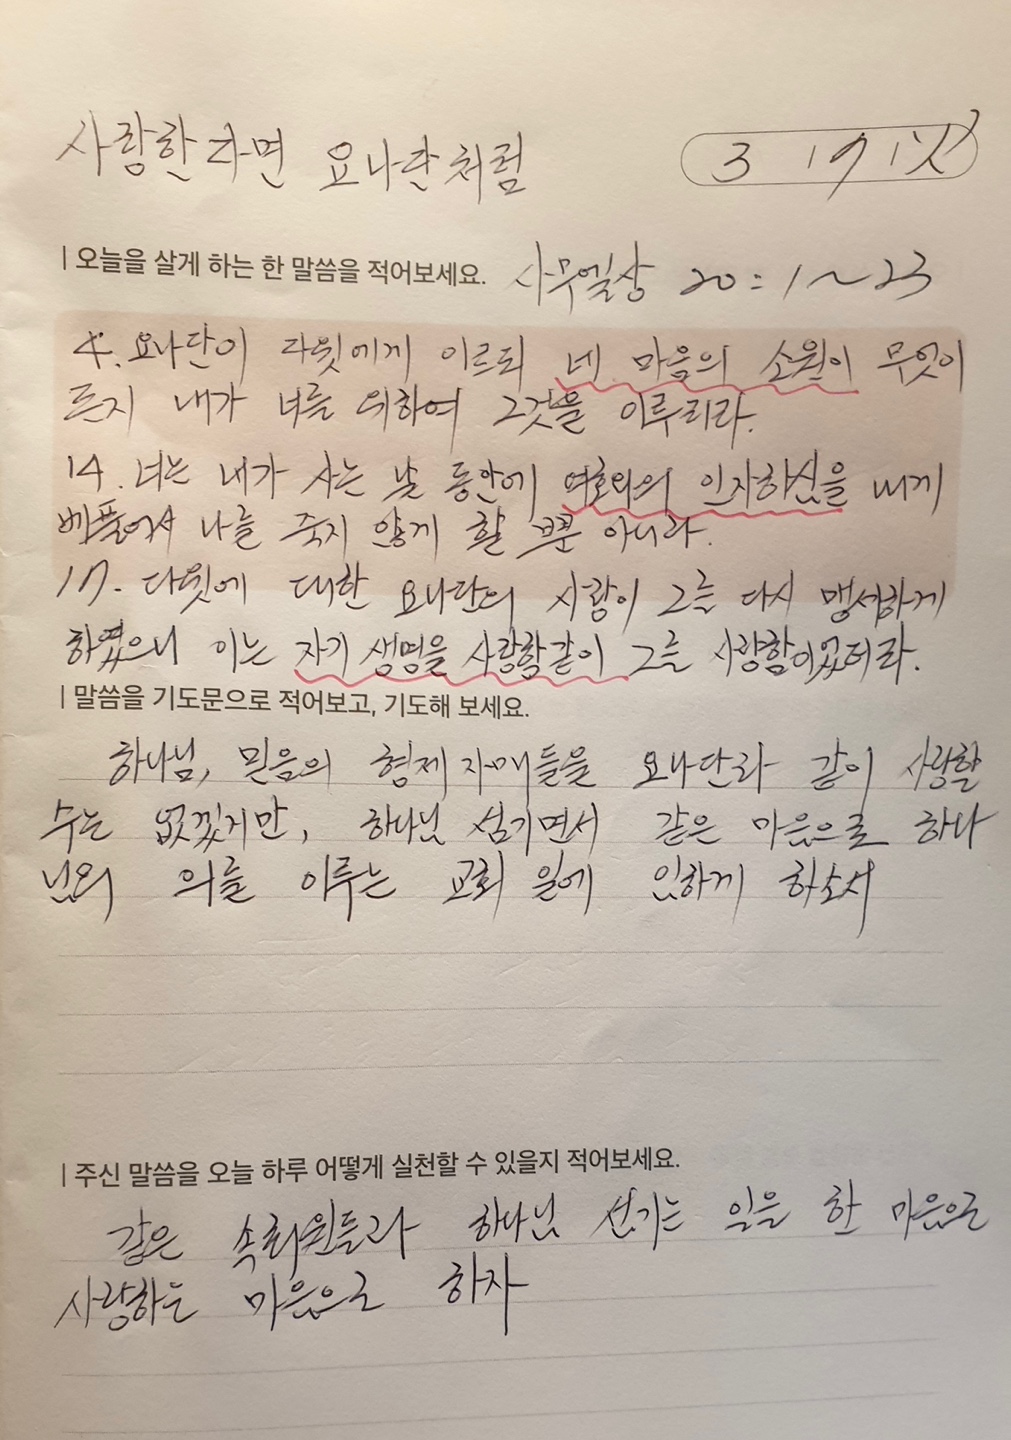 사랑한다면 요나단처럼
3 19 사
| 오늘을 살게 하는 한 말씀을 적어보세요. 사무엘상 20:1~23
4. 요나단이 다윗에게 이르되 네 마음의 소원이 무엇이
든지 내가 너를 위하여 그것을 이루리라.
14. 너는 내가 사는 날 동안에 여호와의 인자하심을 내게
베풀어서 나를 죽지 않게 할 뿐 아니라.
17. 다윗에 대한 요나단의 사랑이 그를 다시 맹세하게
하였으니 이는 자기 생명을 사랑함같이 그를 사랑함이었더라.
| 말씀을 기도문으로 적어보고, 기도해 보세요.
하나님, 믿음의 형제 자매들을 요나단과 같이 사랑할
수는 없겠지만, 하나님 섬기면서 같은 마음으로 하나
님의 의를 이루는 교회 일에 임하게 하소서
| 주신 말씀을 오늘 하루 어떻게 실천할 수 있을지 적어보세요.
같은 속회원들과 하나님 섬기는 일을 한 마음으로
사랑하는 마음으로 하자